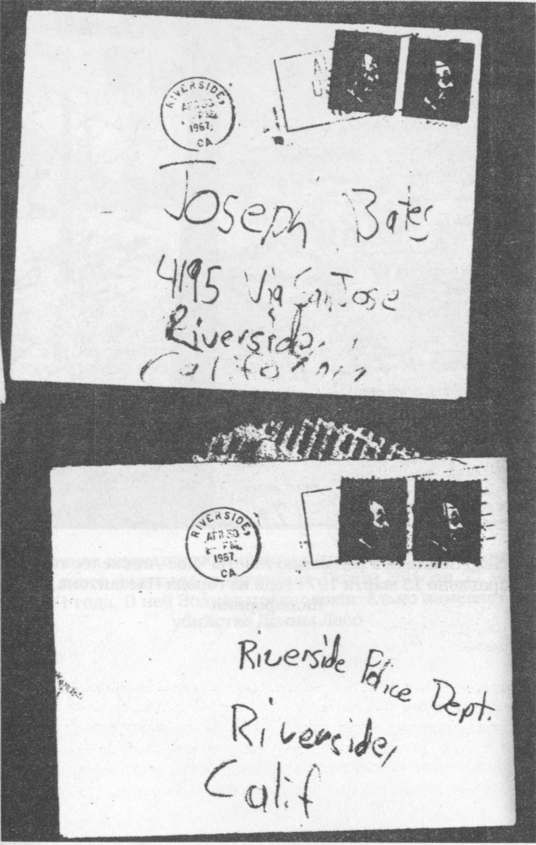 RIVERSIDE,
APR 30
1967
CA
Joseph Bates
4195 Via San Jose
Riverside,
California
RIVERSIDE,
APR 30
1967
CA
Riverside Police Dept.
Riverside,
Calif